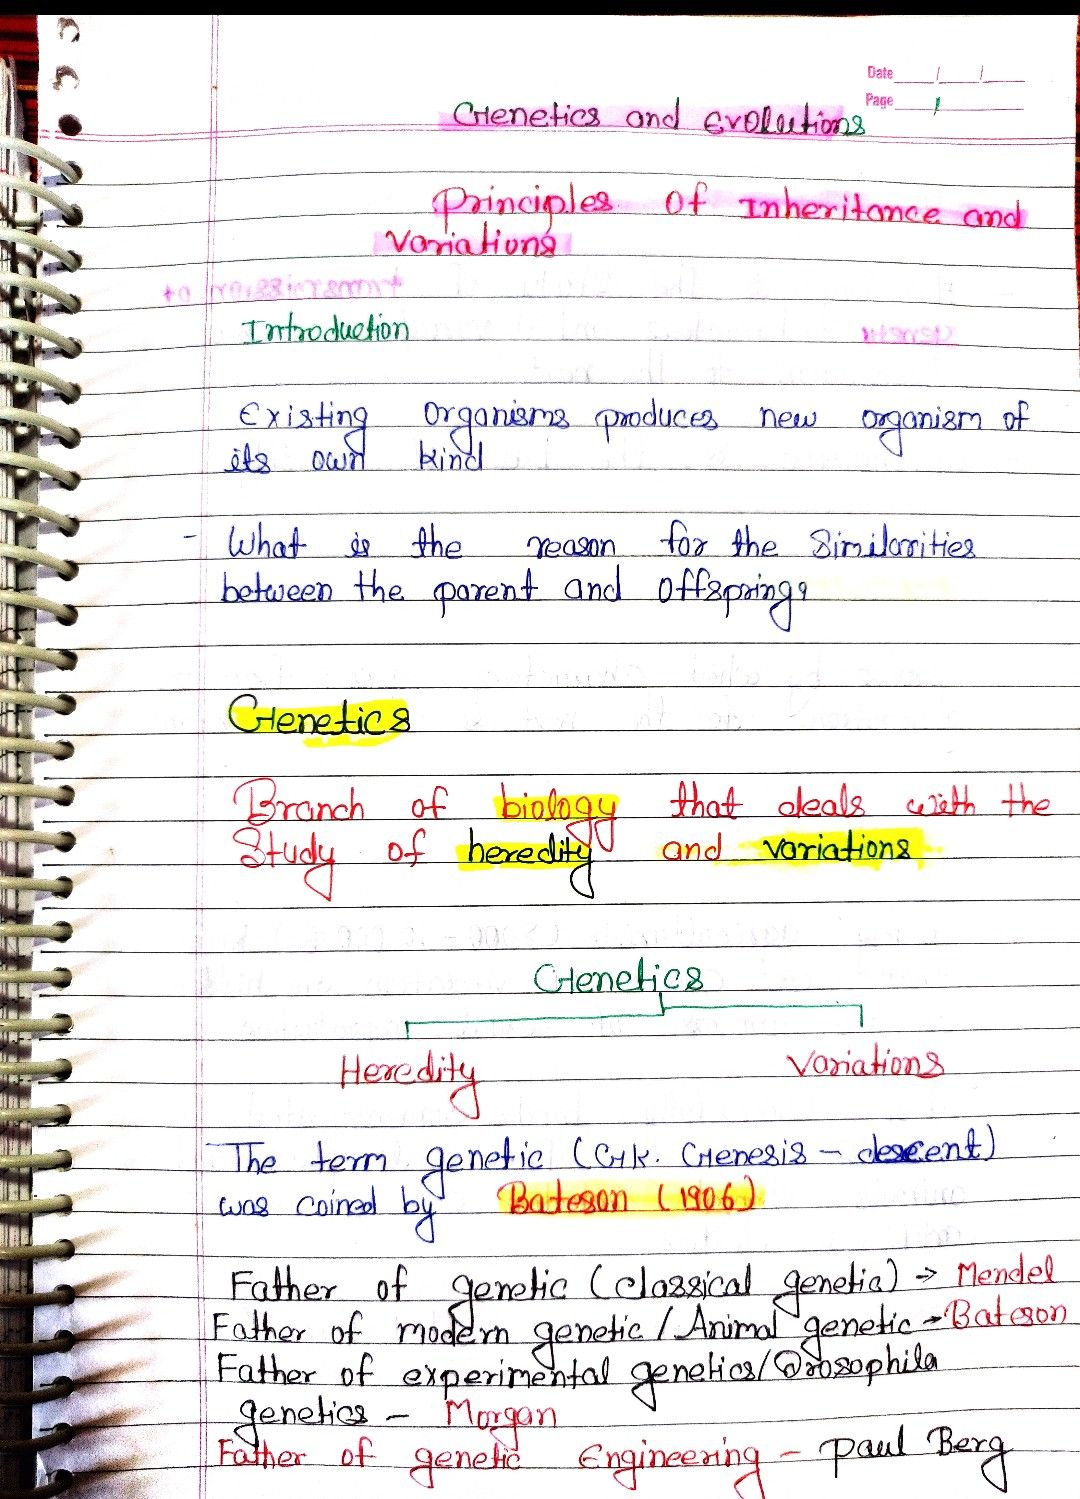 Date
Page 1
Genetics and Evolutions
Principles of Inheritance and
Variations
Introduction
Existing organisms produces new organism of
its own kind
- What is the reason for the similarities
between the parent and offspring?
Genetics
Branch of biology that deals with the
Study of heredity and variations
Genetics
Heredity Variations
The term genetic (Gk. Genesis - descent)
was coined by Bateson (1906)
Father of genetic (classical genetic) → Mendel
Father of modern genetic / Animal genetic → Bateson
Father of experimental genetics/Drosophila
genetics - Morgan
Father of genetic Engineering - Paul Berg